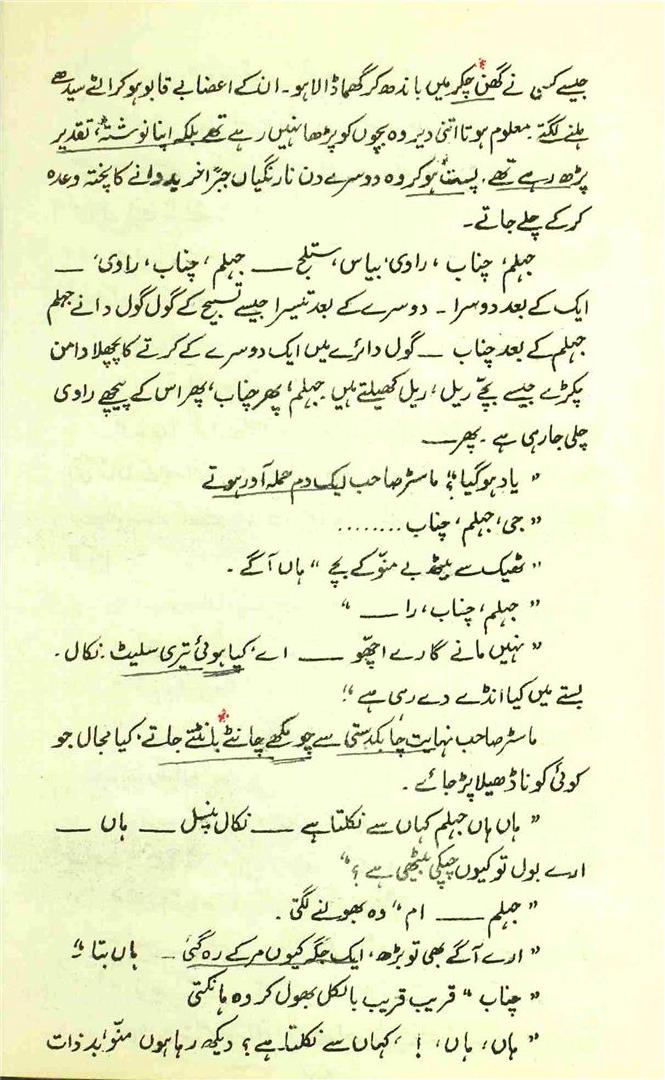 جیسے کسی نے گھن چکر میں باندھ کر گھما ڈالا ہو۔ ان کے اعضا بے قابو ہو کر الٹے سیدھے
ہلنے لگتے۔ معلوم ہوتا اتنی دیر وہ بچوں کو پڑھا نہیں رہے تھے بلکہ اپنا نوشتۂ تقدیر
پڑھ رہے تھے۔ پست ہو کر وہ دوسرے دن نارنگیاں جبراً خریدوانے کا پختہ وعدہ
کر کے چلے جاتے۔
جہلم، چناب، راوی، بیاس، ستلج ــــ جہلم، چناب، راوی، ــــ
ایک کے بعد دوسرا۔ دوسرے کے بعد تیسرا جیسے تسبیح کے گول گول دانے جہلم
جہلم کے بعد چناب ــــ گول دائرے میں ایک دوسرے کے کرتے کا پچھلا دامن
پکڑے جیسے بچے ریل، ریل کھیلتے ہیں۔ جہلم، پھر چناب، پھر اس کے پیچھے راوی
چلی جا رہی ہے۔ پھر ــــ
"یاد ہو گیا؟" ماسٹر صاحب ایک دم حملہ آور ہوتے
"جی، جہلم، چناب ........
"ٹھیک سے بیٹھ بے منو کے بچے" ہاں آگے۔
"جہلم، چناب، را ــــ"
"نہیں مانے گا رے اچھو ــــ اے، کیا ہوئی تیری سلیٹ۔ نکال۔
بستے میں کیا انڈے دے رہی ہے"!
ماسٹر صاحب نہایت چابکدستی سے چومکھے چانٹے بانٹتے جاتے، کیا مجال جو
کوئی کونا ڈھیلا پڑ جائے۔
"ہاں ہاں جہلم کہاں سے نکلتا ہے ــــ نکال پنسل ــــ ہاں ــــ
ارے بول تو کیوں چپکی بیٹھی ہے؟"
"جہلم ــــ ام" وہ بھولنے لگتی۔
"ارے آگے بھی تو بڑھ، ایک جگہ کیوں مر کے رہ گئی ــ ہاں بتا"
"چناب" قریب قریب بالکل بھول کر وہ ہانکتی
"ہاں، ہاں، !، کہاں سے نکلتا ہے؟ دیکھ رہا ہوں منو بد ذات